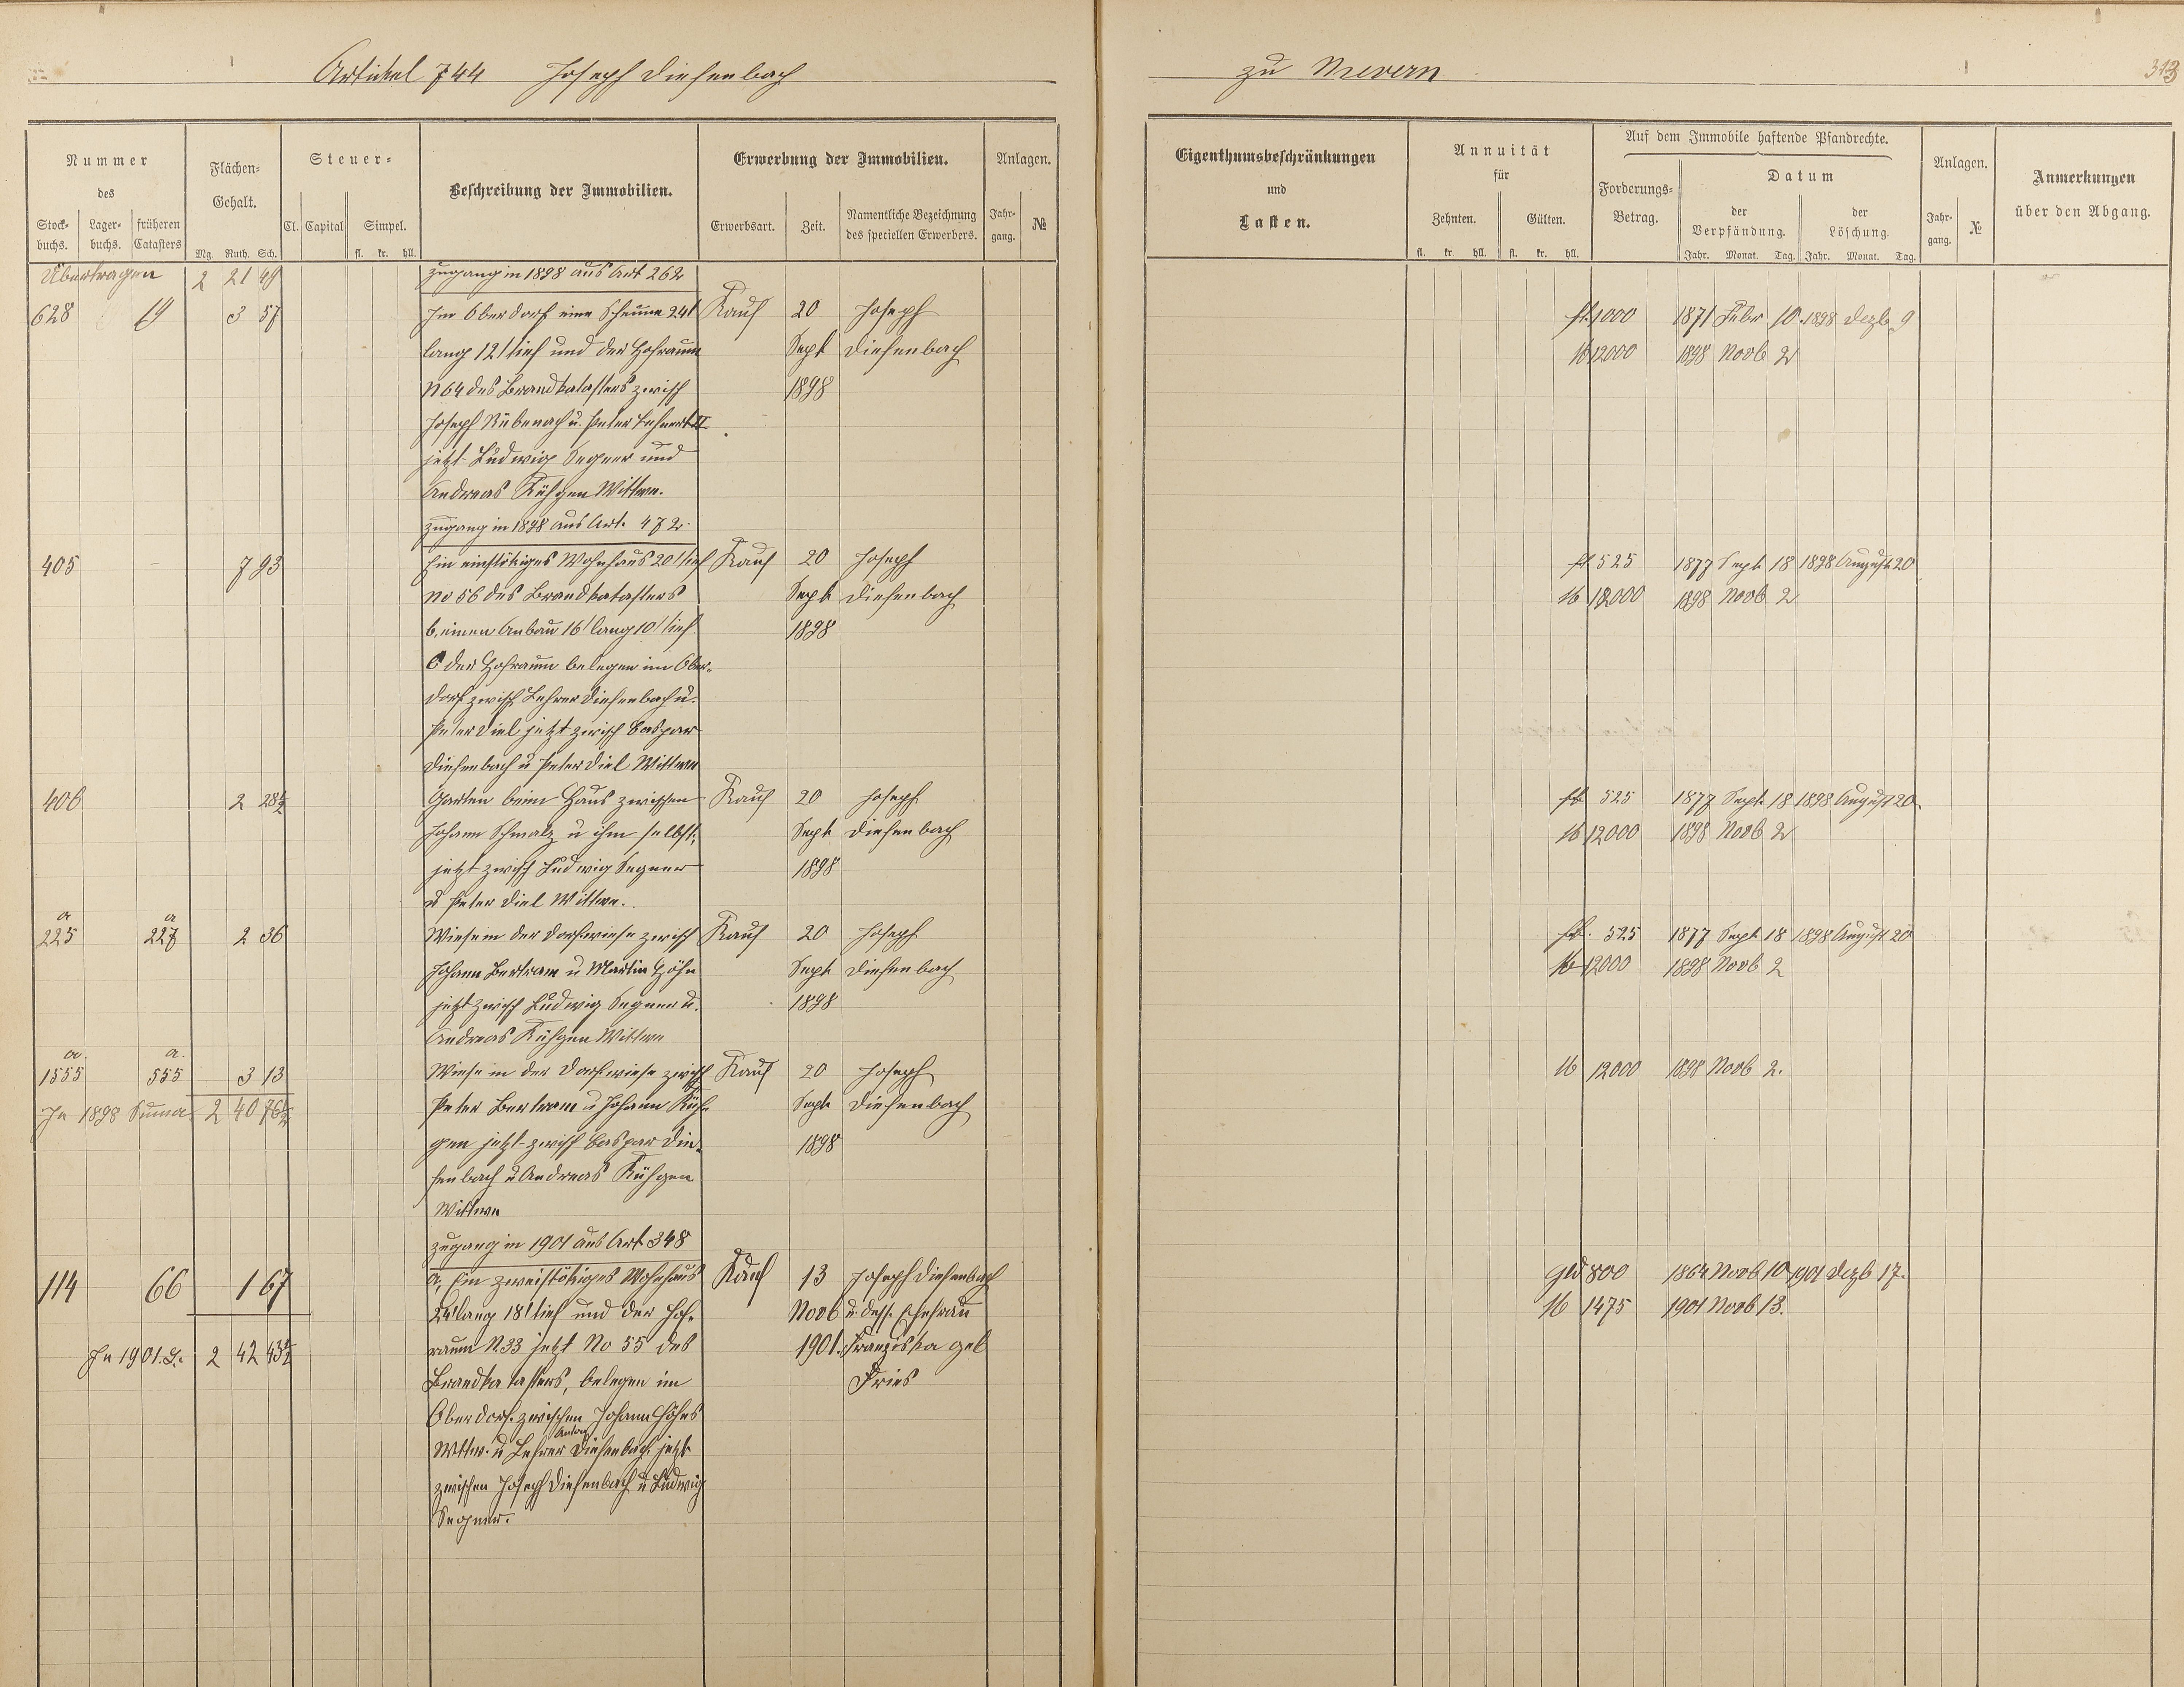 Artikel 744 Joseph Diefenbach
zu Mevern
313
Nummer
des
Stock-
buchs.
Lager-
buchs.
früheren
Catasters
Flächen-
Gehalt.
Mg. Ruth. Sch.
Steuer-
Cl. Capital Simpel.
fl. kr. hll.
Beschreibung der Immobilien.
Erwerbung der Immobilien.
Erwerbsart.
Zeit.
Namentliche Bezeichnung
des speciellen Erwerbers.
Anlagen.
Jahr-
gang.
№
Eigenthumsbeschränkungen
und
Lasten.
Annuität
für
Zehnten. Gülten.
fl. kr. hll. fl. kr. hll.
Auf dem Immobile haftende Pfandrechte.
Forderungs-
Betrag.
Datum
der
Verpfändung.
der
Löschung.
Jahr. Monat. Tag. Jahr. Monat. Tag.
Anlagen.
Jahr-
gang.
№
Anmerkungen
über den Abgang.
Übertragen 2 21 49 Zugang in 1898 aus Art 262
628 19 3 57 Im Oberdorf eine Scheune 24' Kauf 20 Joseph fl. 1000 1871 Febr 10 1898 Dezb 9
lang 12' tief und der Hofraum Sept Diefenbach 12000 1898 Novb 2
N 64 des Brandkatasters zwisch 1898
Joseph Rübenach u. Peter Lehnert II
jetzt Ludwig Segner und
Andreas Kühgen Wittwe.
Zugang in 1898 aus Art. 472.
405 7 93 Ein einstökiges Wohnhaus 20' tief Kauf 20 Joseph fl. 525 1877 Sept 18 1898 August 20
No 56 des Brandkatasters Sept Diefenbach 12000 1898 Novb 2
b, einen Anbau 16' lang 10' tief 1898
C der Hofraum belegen im Ober-
dorf zwisch Lehrer Diefenbach u.
Peter Diel jetzt zwisch Caspar
Diefenbach u Peter Diel Wittwe
406 2 28½ Garten beim Haus zwischen Kauf 20 Joseph fl. 525 1877 Sept. 18 1898 August 20
Johann Schmalz u ihm selbst, Sept Diefenbach 12000 1898 Novb 2
jetzt zwisch Ludwig Segner 1898
u Peter Diel Wittwe.
a a
225 227 2 36 Wiese in der Dorfwiese zwisch Kauf 20 Joseph fl. 525 1877 Sept 18 1898 August 20
Johann Bertram u Martin Höhn Sept Diefenbach 12000 1898 Novb 2
jetzt zwisch Ludwig Segner u. 1898
Andreas Kühgen Wittwe
a. a.
1555 555 3 13 Wiese in der Dorfwiese zwisch Kauf 20 Joseph 12000 1898 Novb 2.
In 1898 Suma 2 40 76½ Peter Bertram u Johann Küh- Sept Diefenbach
gen jetzt zwisch Caspar Die- 1898
fenbach u Andreas Kühgen
Wittwe
Zugang in 1901 aus Art 348
114 66 1 67 a, Ein zweistökiges Wohnhaus Kauf 13 Joseph Diefenbach Gld 800 1864 Novb 10 1901 Dezb 17.
24' lang 18' tief und der Hof- Novb u dess. Ehefrau 1475 1901 Novb 13.
In 1901. S. 2 42 43½ raum N. 33 jetzt No 55 des 1901. Franziska geb
Brandkatasters, belegen im Fries
Oberdorf. zwischen Johann Höhns
Anton
Wttw. u Lehrer Diefenbach jetzt
zwischen Joseph Diefenbach u Ludwig
Segner.